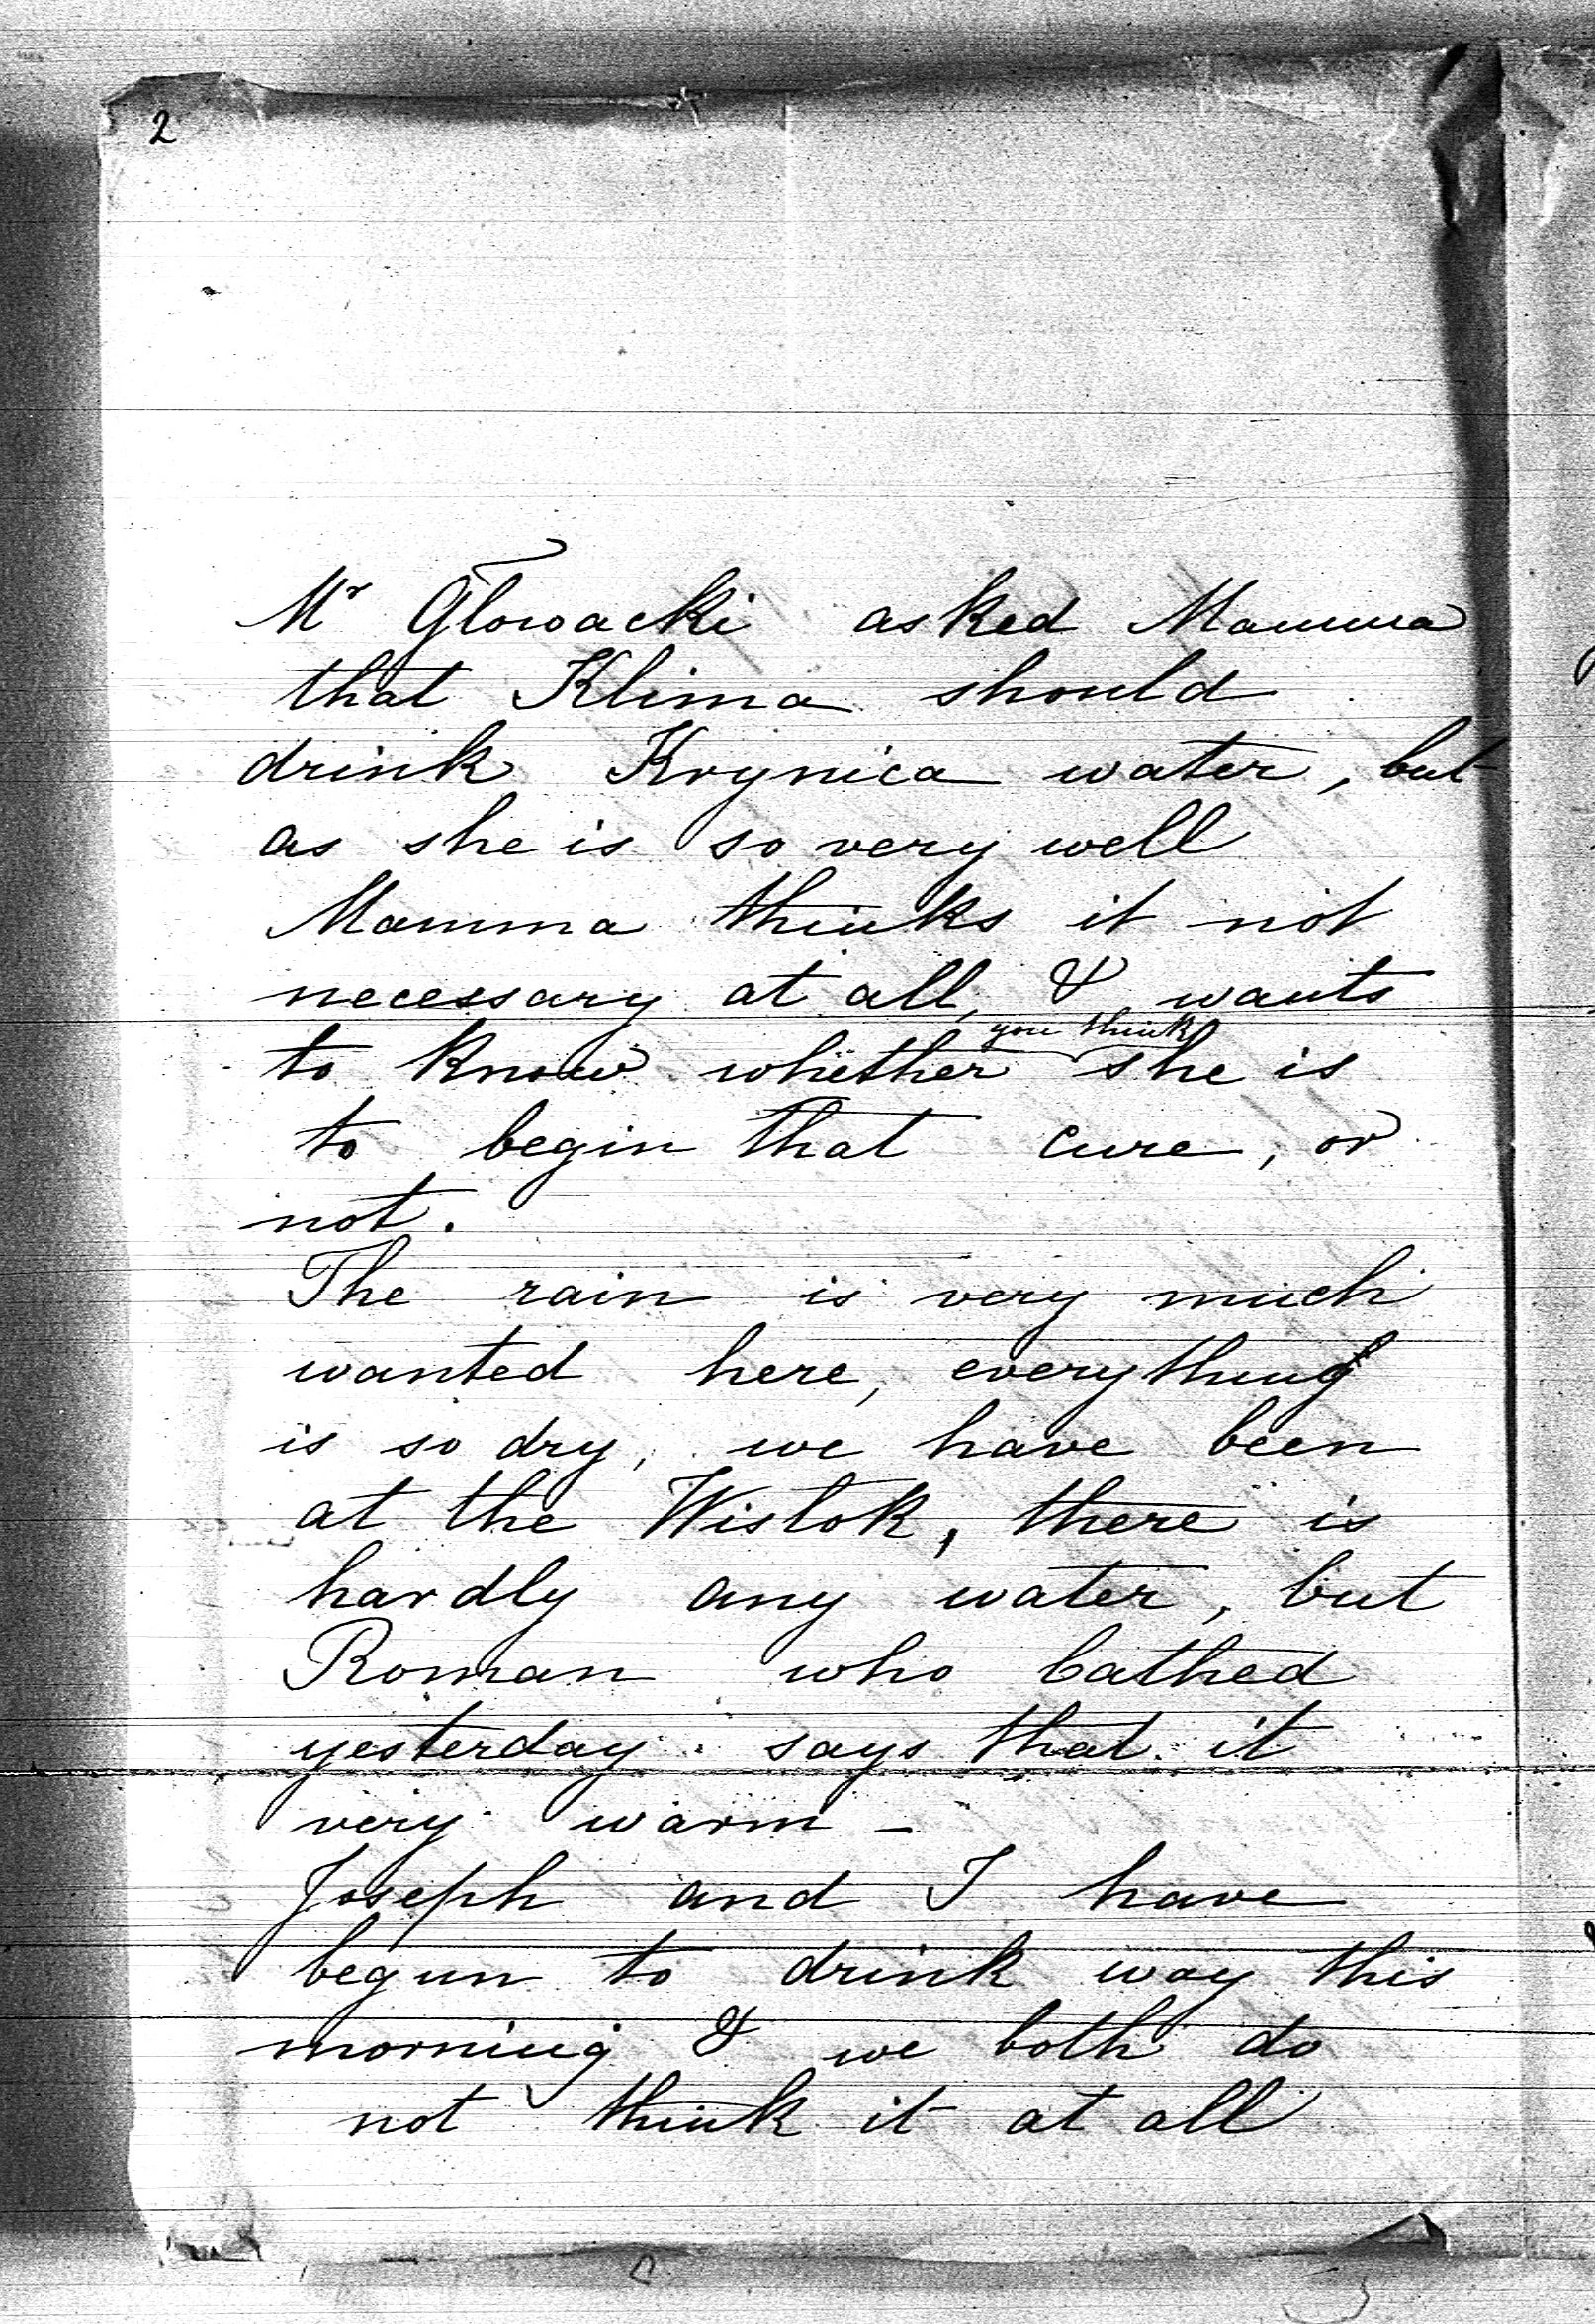 2
Mr Glowacki asked Mamma
that Klima should
drink Krynica water, but
as she is so very well
Mamma thinks it not
necessary at all, & wants
you think
to know whether she is
to begin that cure, or
not.
The rain is very much
wanted here, everything
is so dry, we have been
at the Wistok, there is
hardly any water, but
Roman who bathed
yesterday says that it
very warm –
Joseph and I have
begun to drink way this
morning & we both do
not think it at all